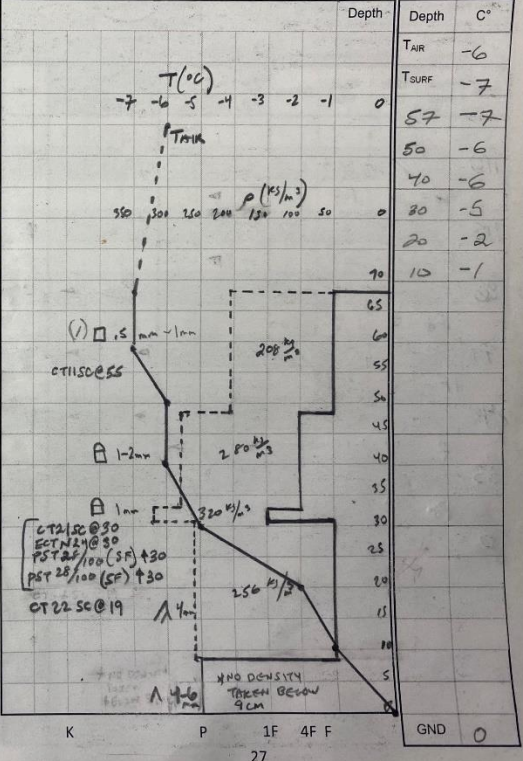 Depth
Depth C°
TAIR -6
TSURF -7
57 -7
50 -6
40 -6
30 -5
20 -2
10 -1
GND 0
T(°C)
-7 -6 -5 -4 -3 -2 -1 0
TAIR
ρ (kg/m³)
350 300 250 200 150 100 50 0
70
65
60
55
50
45
40
35
30
25
20
15
10
5
0
(/) □ .5 mm - 1mm
208 kg/m³
CT11SC@55
1-2mm
280 kg/m³
1mm
320 kg/m³
CT21SC@30
ECTN24@30
PST 28/100 (SF) ↑30
PST 28/100 (SF) ↑30
256 kg/m³
CT22 SC@19
Λ 4mm
Λ 4-6 mm
*NO DENSITY
TAKEN BELOW
9CM
K P 1F 4F F
27